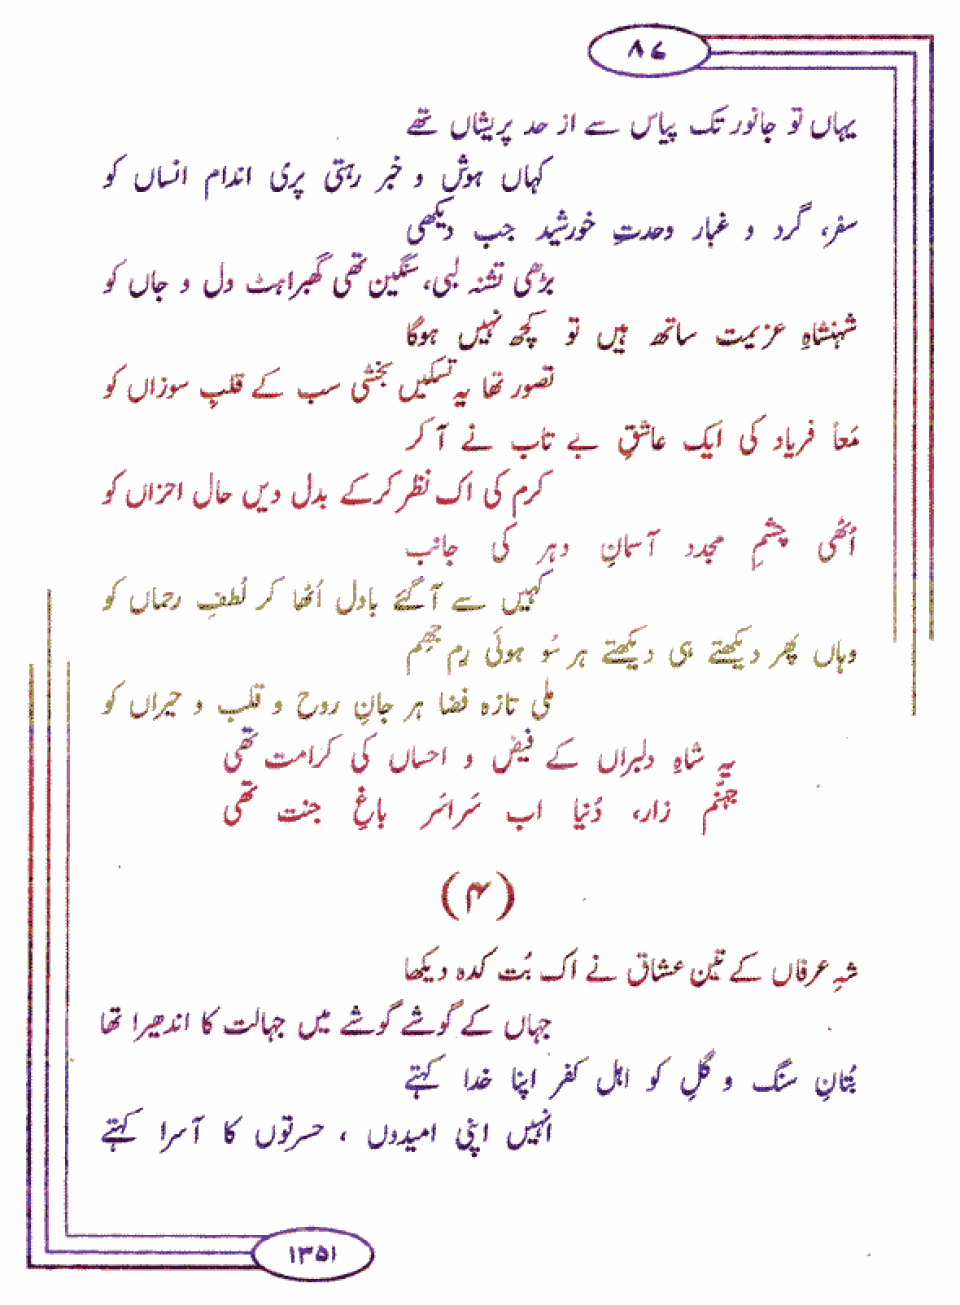 ۸۶
یہاں تو جانور تک پیاس سے از حد پریشاں تھے
کہاں ہوش و خبر رہتی پری اندام انساں کو
سفر، گرد و غبار وحدتِ خورشید جب دیکھی
بڑھی تشنہ لبی، سنگین تھی گھبراہٹ دل و جاں کو
شہنشاہِ عزیمت ساتھ ہیں تو کچھ نہیں ہوگا
تصور تھا یہ تسکیں بخشی سب کے قلبِ سوزاں کو
مَعاً فریاد کی ایک عاشقِ بے تاب نے آ کر
کرم کی اک نظر کرکے بدل دیں حال احزاں کو
اُٹھی چشمِ مجدد آسمانِ دہر کی جانب
کہیں سے آگئے بادل اُٹھا کر لُطفِ رحماں کو
وہاں پھر دیکھتے ہی دیکھتے ہر سُو ہوئی رِم جھِم
ملی تازہ فضا ہر جانِ روح و قلب و حیراں کو
یہ شاہِ دلبراں کے فیض و احساں کی کرامت تھی
جہنّم زار، دُنیا اب سَراسَر باغِ جنت تھی
(۴)
شہِ عرفاں کے تین عشاق نے اک بُت کدہ دیکھا
جہاں کے گوشے گوشے میں جہالت کا اندھیرا تھا
بُتانِ سنگ و گلِ کو اہل کفر اپنا خدا کہتے
انہیں اپنی امیدوں ، حسرتوں کا آسرا کہتے
۱۳۵۱